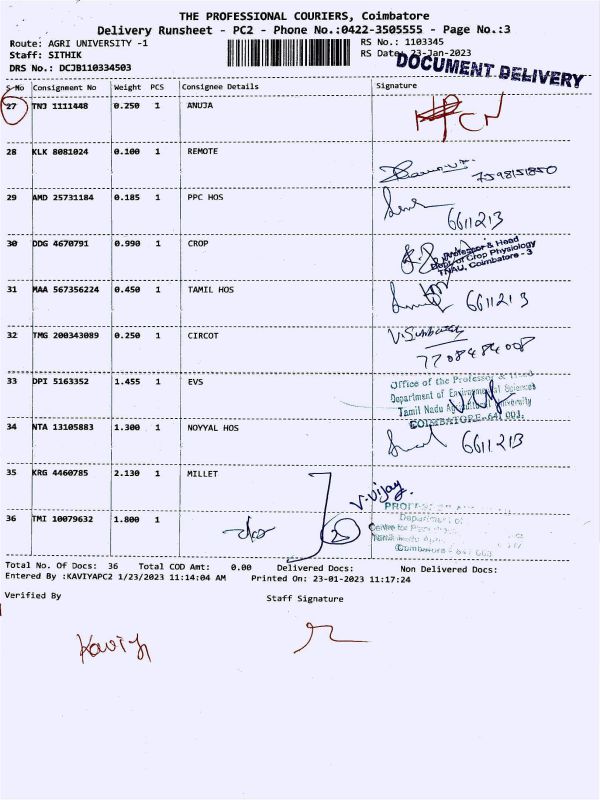 THE PROFESSIONAL COURIERS, Coimbatore
Delivery Runsheet - PC2 - Phone No.:0422-3505555 - Page No.:3
Route: AGRI UNIVERSITY -1
RS No.: 1103345
Staff: SITHIK
RS Date: 23-Jan-2023
DRS No.: DCJB110334503
DOCUMENT DELIVERY
S No Consignment No Weight PCS Consignee Details Signature
27 TNJ 1111448 0.250 1 ANUJA
28 KLK 8081024 0.100 1 REMOTE
7598151850
29 AMD 25731184 0.185 1 PPC HOS
6611213
30 DDG 4670791 0.990 1 CROP
Professor & Head
Dept. of Crop Physiology
TNAU, Coimbatore - 3
31 MAA 567356224 0.450 1 TAMIL HOS
6611213
32 TMG 200343089 0.250 1 CIRCOT
7708484008
33 DPI 5163352 1.455 1 EVS
Office of the Professor & Head
Department of Environmental Sciences
Tamil Nadu Agricultural University
COIMBATORE-641 003.
34 NTA 13105883 1.300 1 NOYYAL HOS
6611213
35 KRG 4460785 2.130 1 MILLET
V.Vijay
36 TMI 10079632 1.800 1
2
Department of
Centre for
Coimbatore - 641 003
Total No. Of Docs: 36 Total COD Amt: 0.00 Delivered Docs: Non Delivered Docs:
Entered By :KAVIYAPC2 1/23/2023 11:14:04 AM Printed On: 23-01-2023 11:17:24
Verified By Staff Signature
Kaviya